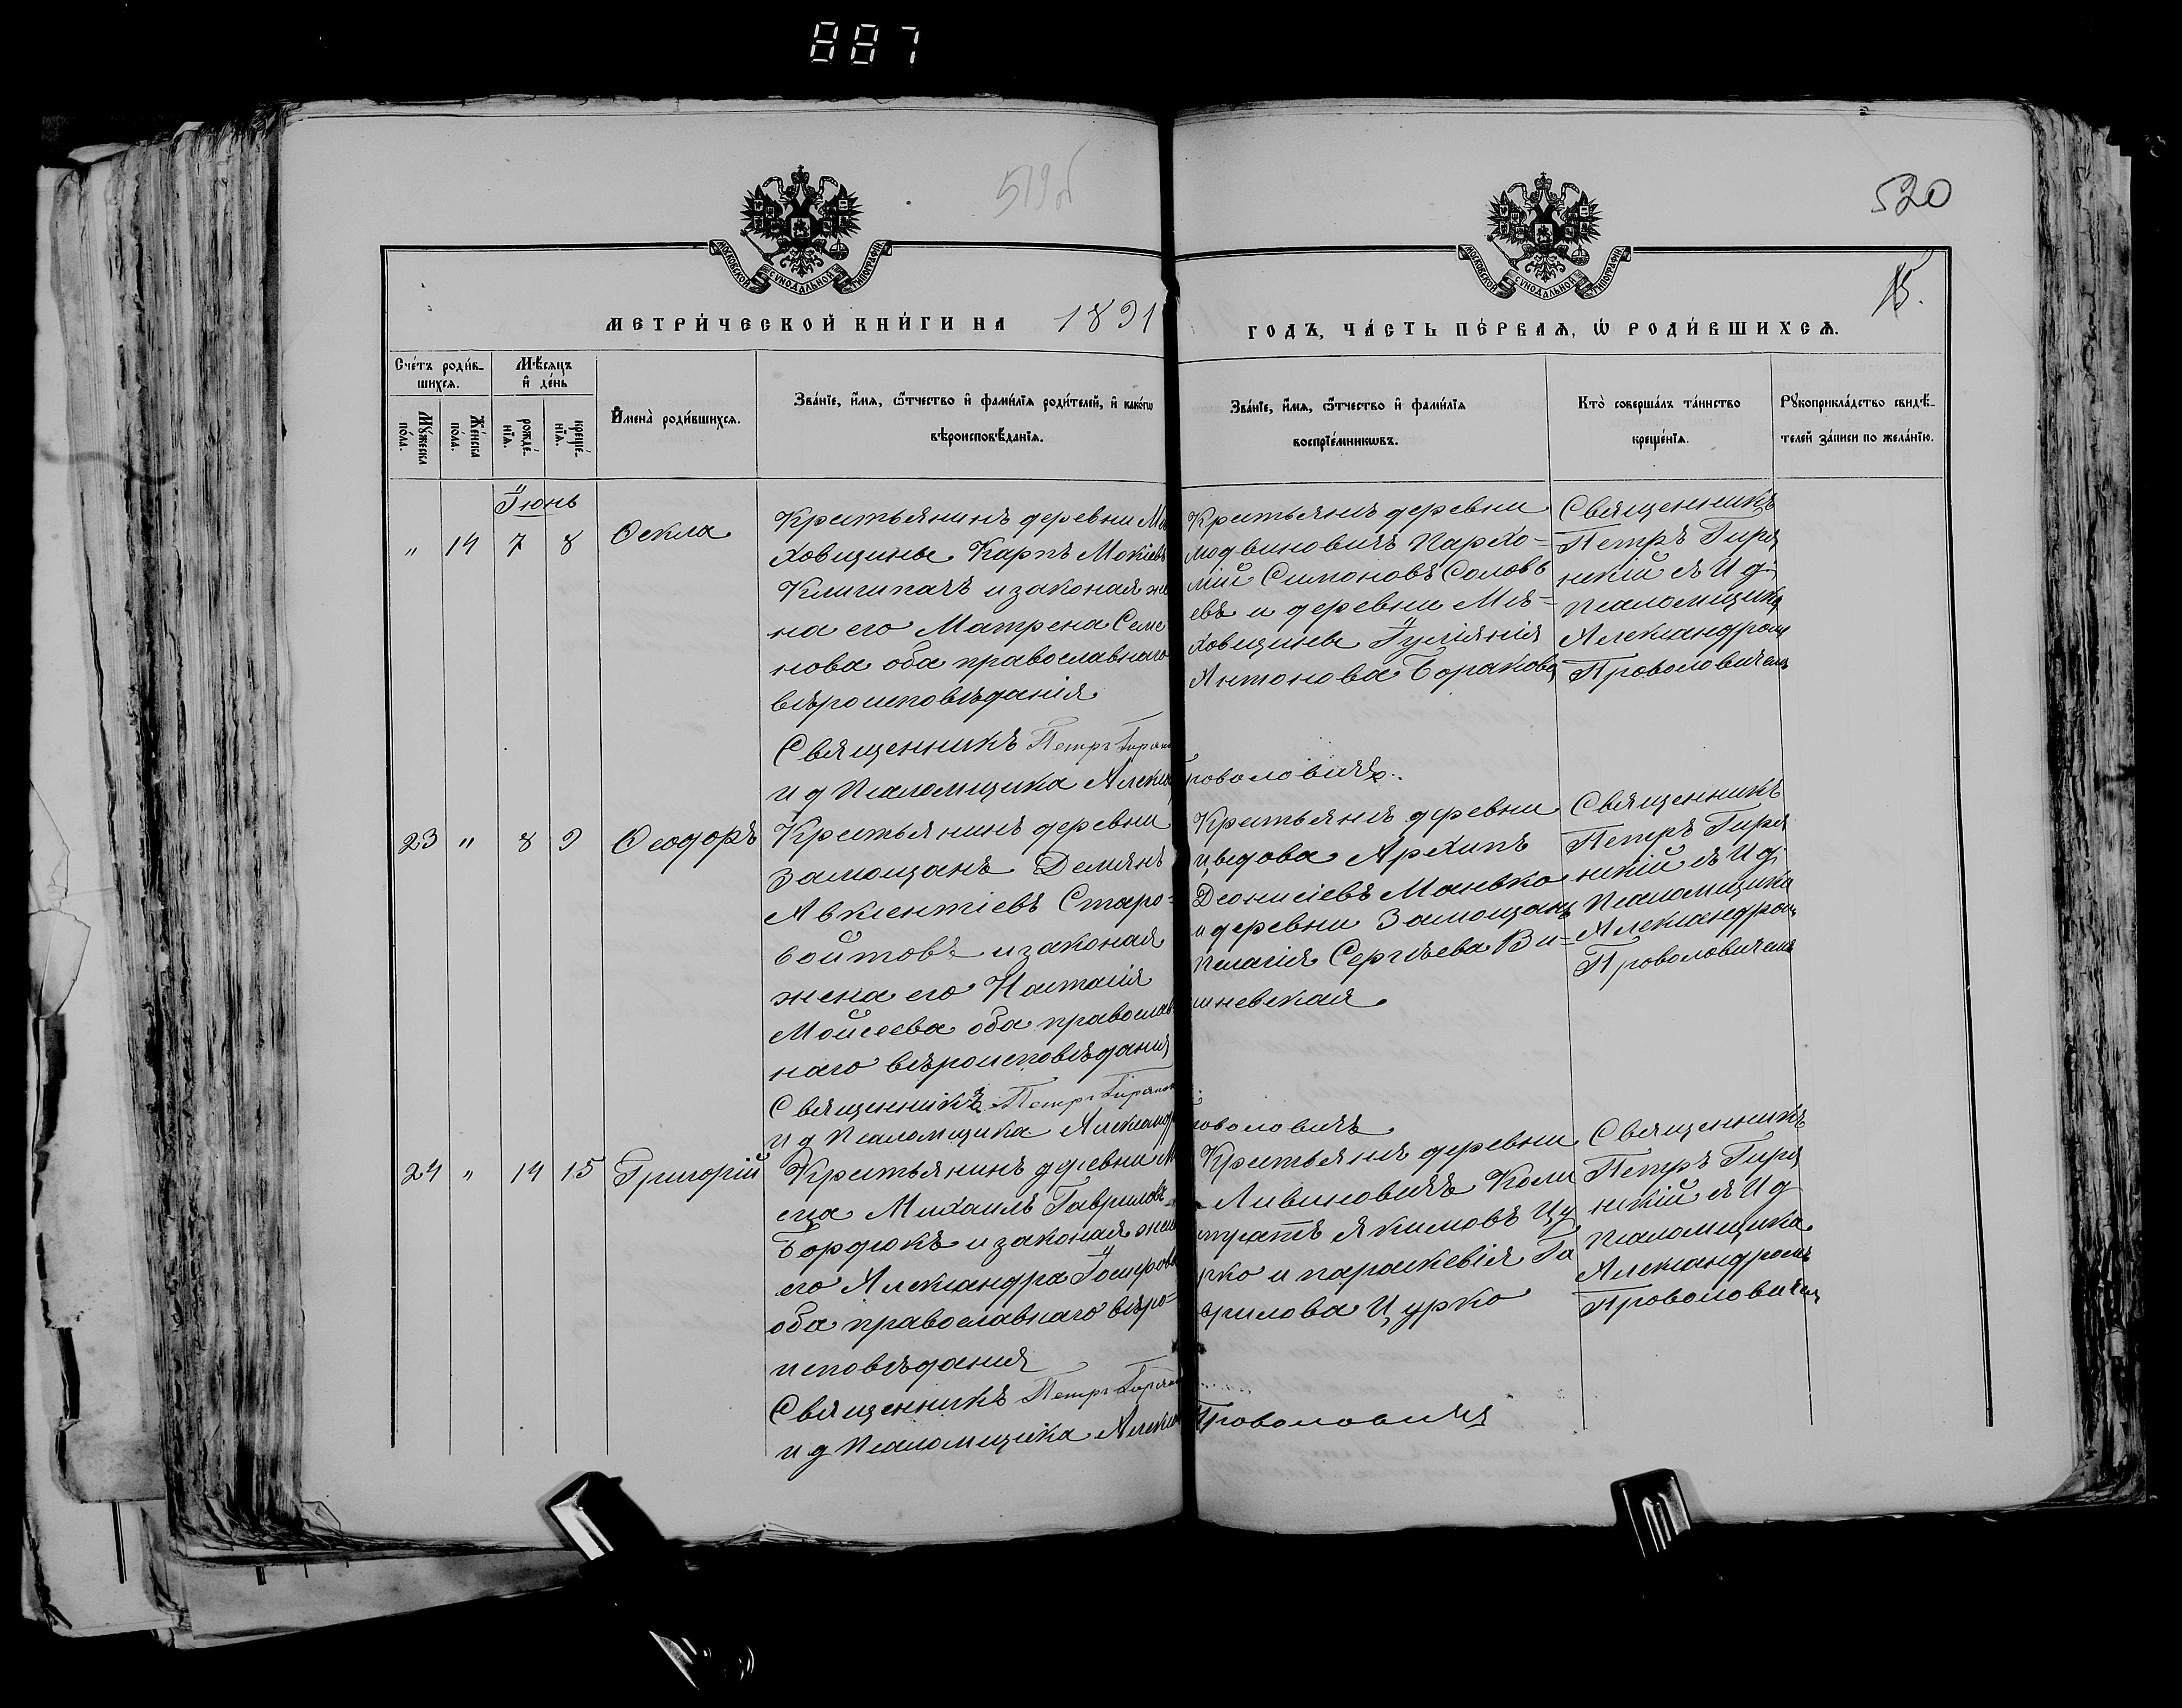 887
519б
520
15.
МОСКОВСКОЙ СѴНОДАЛЬНОЙ ТИПОГРАФІИ
МОСКОВСКОЙ СѴНОДАЛЬНОЙ ТИПОГРАФІИ
МЕТРИ́ЧЕСКОЙ КНИ́ГИ НА 1891
ГОДЪ, ЧА́СТЬ ПЕ́РВАѦ, Ѡ҆ РОДИ́ВШИХСѦ.
Сче́тъ роди́в-
шихсѧ.
Мѣ́сѧцъ
и҆ де́нь
Мꙋ́жеска
по́ла.
Же́нска
по́ла.
рожде́-
нїѧ.
креще́-
нїѧ.
И҆мена̀ роди́вшихсѧ.
Зва́нїе, и҆́мѧ, ѻ҆́тчество и҆ фами́лїѧ роди́телей, и҆ како́гѡ
вѣроисповѣ́данїѧ.
Зва́нїе, и҆́мѧ, ѻ҆́тчество и҆ фами́лїѧ
воспрїе́мникѡвъ.
Кто̀ соверша́лъ та́инство
креще́нїѧ.
Рꙋкоприкла́дство свидѣ́-
телей за́писи по жела́нїю.
Іюнь
" 14 7 8 Ѳекла
Крестьянинъ деревни Ме
ховщины Карпъ Мокіевъ
и законая же
на его Матрена Семе
нова оба православнаго
вѣроисповѣданія
Священникъ Петръ
и д Псаломщика Алекса
Крестьянъ деревни
модвиновичъ Пархо-
мій Симоновъ Соловь
евъ и деревни Ме-
ховщины Іуліянія
Антонова Боракова
роволовичъ.
Священникъ
Петръ Гиря
нскій съ И д
псаломщика
Александромъ
Проволовичемъ
23 " 8 9 Ѳеодоръ
Крестьянинъ деревни
Замощанъ Демянъ
Авксентіевъ Старо-
войтовъ и законая
жена его Настасія
Мойсеева оба православ
наго вѣроисповѣданія
Священникъ Петръ
и д Псаломщика Александ
Крестьянъ деревни
Архипъ
Деонисіевъ Манько
и деревни Замощанъ
пелагія Сергѣева Ви-
шневская
роволовичъ
Священникъ
Петръ Гиря
нскій съ И д
Псаломщика
Александромъ
Проволовичемъ
24 " 14 15 Григорій
Крестьянинъ деревни М
Михаилъ Гавриловъ
Бордюкъ и законая жена
его Александра Іосифова
оба православнаго вѣро-
исповѣдания
Священникъ Петръ
и д Псаломщика Алекса
Крестьянъ деревни
Ливиновичъ Кали
стратъ Якимовъ Цу
рко и параскевія Га
врилова Цурко
Проволовичъ
Священникъ
Петръ Гиря
нскій съ И д
псаломщика
Александромъ
Проволовичемъ